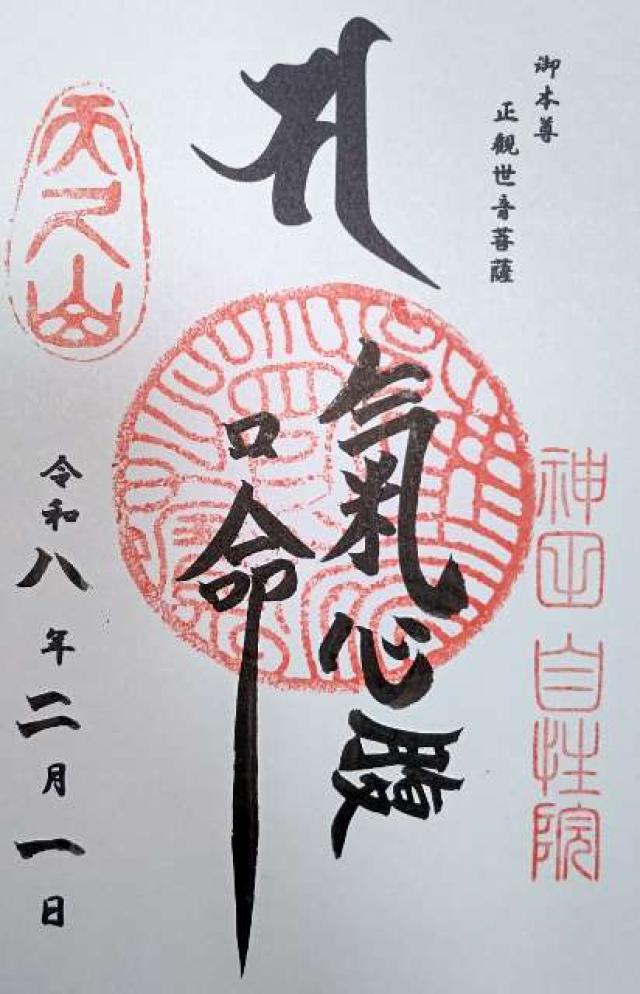 御本尊
正観世音菩薩
氣心腹
口命
令和八年二月一日
天之山
自性院